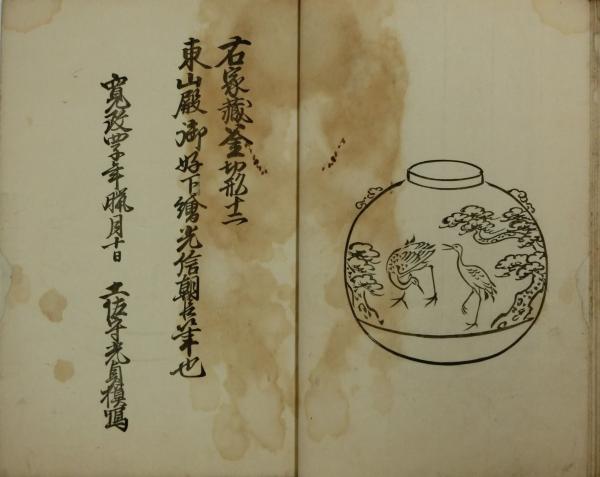 右家藏釜切形十二
東山殿御好下繪光信朝臣筆也
寛政四子年臘月十日
土佐守光貞模寫